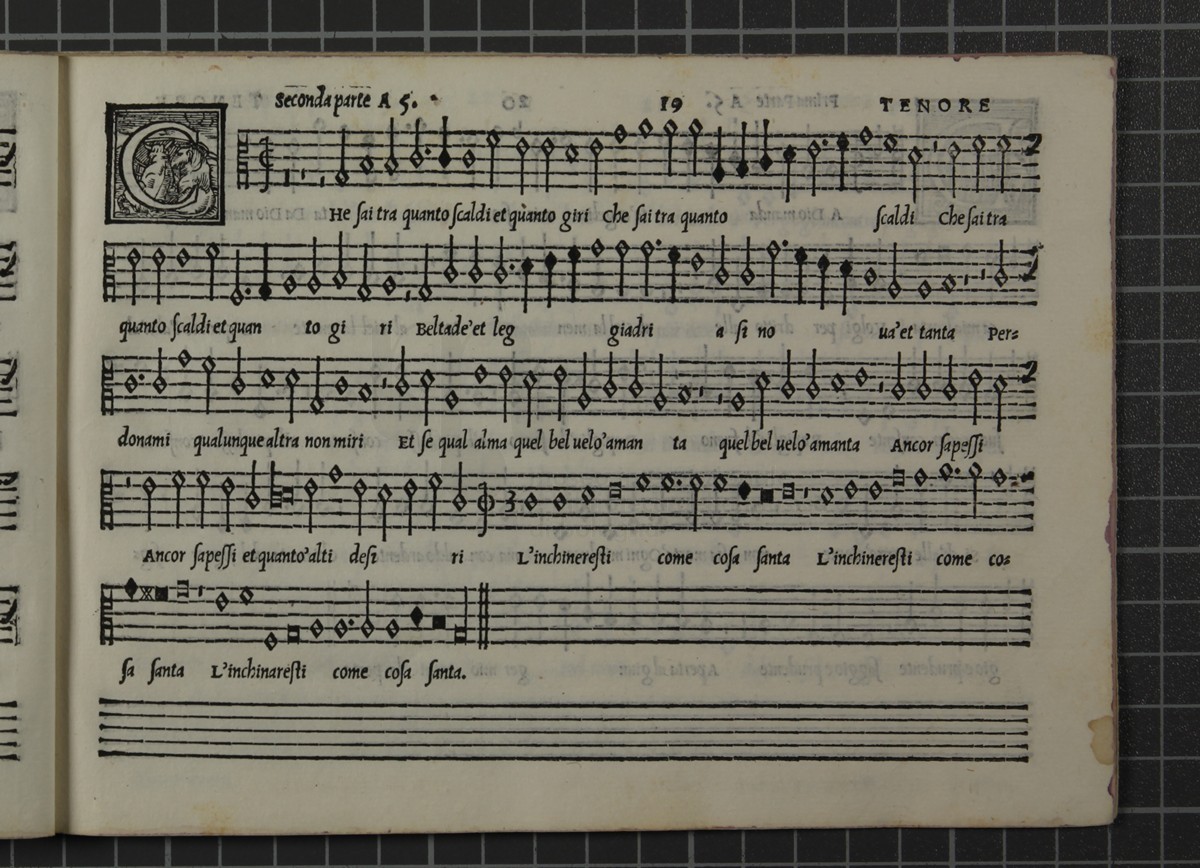 Seconda parte A 5. 19 TENORE
CHe ſai tra quanto ſcaldi et quanto giri Che ſai tra quanto ſcaldi Che ſai tra
quanto ſcaldi et quan to gi ri Beltade'et leg giadri a ſi no ua'et tanta Per=
donami qualunque altra non miri Et ſe qual alma quel bel uelo'aman ta quel bel uelo'amanta Ancor ſapeſſi
Ancor ſapeſſi et quanto'alti deſi ri L'inchinereſti come coſa ſanta L'inchinereſti come co=
ſa ſanta L'inchinareſti come coſa ſanta.